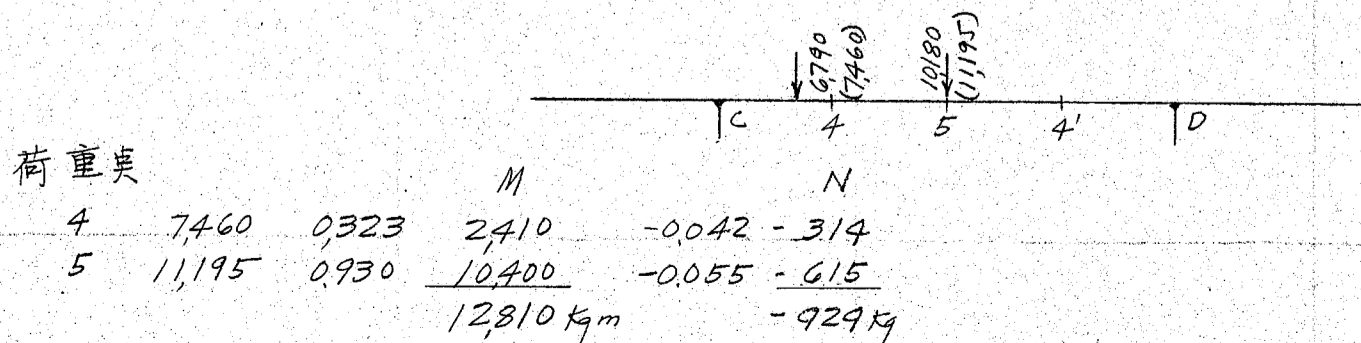 6,790 10,180
(7,460) (11,195)
C 4 5 4' D
荷重点
M N
4 7,460 0,323 2,410 -0,042 - 314
5 11,195 0,930 10,400 -0,055 - 615
12,810 kgm - 929 kg